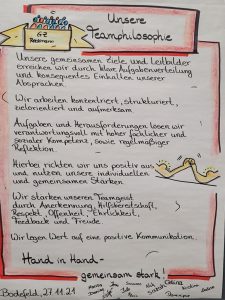 Unsere
Teamphilosophie
GZ
Unsere gemeinsamen Ziele und Leitbilder
erreichen wir durch klare Aufgabenverteilung
und konsequentes Einhalten unserer
Absprachen.
Wir arbeiten konzentriert, strukturiert,
zielorientiert und aufmerksam
Aufgaben und Herausforderungen lösen wir
verantwortungsvoll mit hoher fachlicher und
sozialer Kompetenz, sowie regelmäßiger
Reflektion.
Hierbei richten wir uns positiv aus
und nutzen unsere individuellen
und gemeinsamen Stärken
Wir stärken unseren Teamgeist
durch Anerkennung, Hilfsbereitschaft,
Respekt, Offenheit, Ehrlichkeit,
Feedback und Freude.
Wir legen Wert auf eine positive Kommunikation.
Hand in Hand -
gemeinsam stark!
Bödefeld, 27.11.21